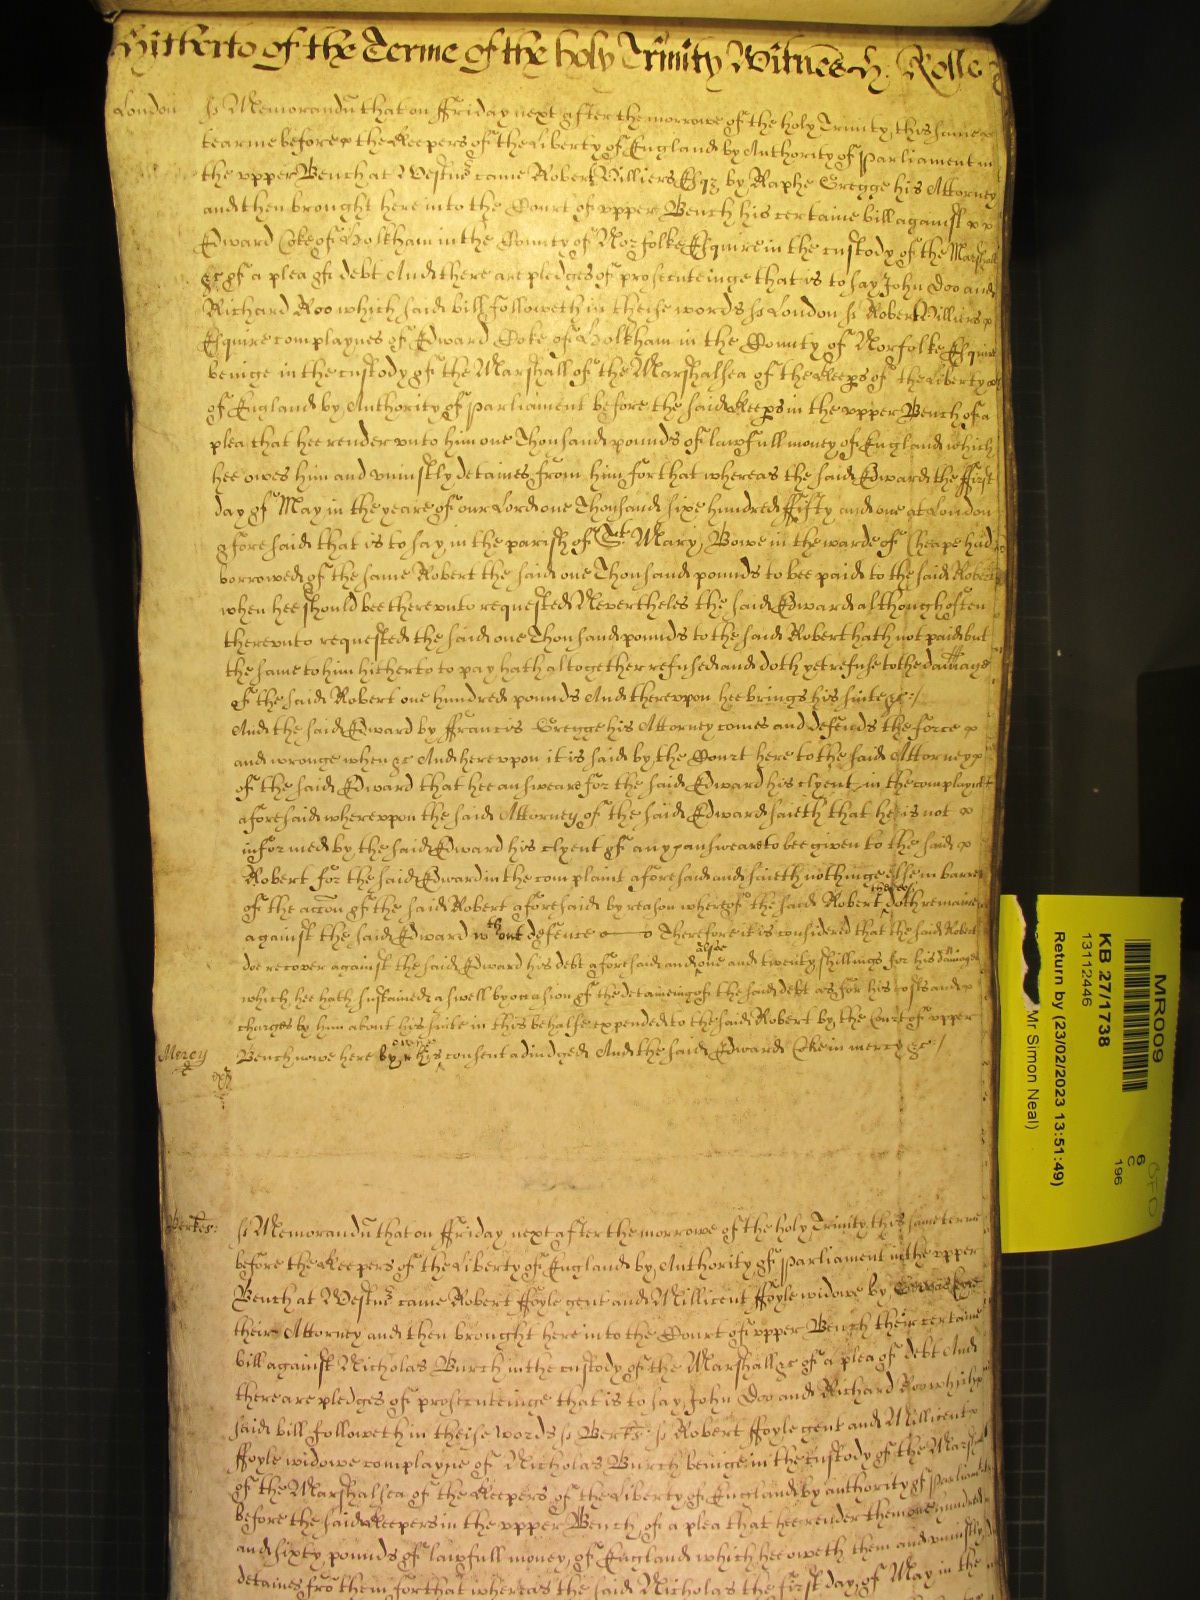 Hitherto of the Terme of the holy Trinity Witnes H. Rolle
London ss Memorandū that on ffriday next after the morrowe of the holy Trinity this same
tearme before the Keepers of the Liberty of England by Authority of Parliament in
the vpper Bench at Westm̄ came Robert Villiers Esqz by Raphe Gregge his Attorney
and then brought here into the Court of vpper Bench his certaine bill against
Edward Coke of Holkham in the County of Norfolke Esquire in the custody of the Marshall
&c of a plea of debt And there are pledges of prosecuteinge that is to say John Doo and
Richard Roo which said bill followeth in theise words ss London ss Robert Villiers
Esquire complaynes of Edward Coke of Holkham in the County of Norfolke Esquire
beinge in the custody of the Marshall of the Marshalsea of the Keeps of the Liberty
of England by Authority of Parliament before the said Keeps in the vpper Bench of a
plea that hee render vnto him one Thousand pounds of lawfull money of England which
hee owes him and vniustly detaines from him for that whereas the said Edward the ffirst
day of May in the yeare of our Lord one Thousand sixe hundred ffifty and one at London
aforesaid that is to say in the parish of St Mary Bowe in the warde of Cheape had
borrowed of the same Robert the said one Thousand pounds to bee paid to the said Robert
when hee should bee therevnto requested Nevertheles the said Edward although often
therevnto requested the said one Thousand pounds to the said Robert hath not paid but
the same to him hitherto to pay hath altogether refused and doth yet refuse to the damage
of the said Robert one hundred pounds And therevpon hee brings his suite &c /
And the said Edward by ffrancis Gregge his Attorney comes and defends the force
and wronge when &c And herevpon it is said by the Court here to the said Attorney
of the said Edward that hee answeare for the said Edward his clyent in the complaynt
aforesaid wherevpon the said Attorney of the said Edward saieth that he is not
informed by the said Edward his clyent of any answeare to bee given to the said
Robert for the said Edward in the complaint aforesaid and saieth nothinge else in barre
of the accon of the said Robert aforesaid by reason whereof the said Robert thereof doth remaine
against the said Edward wth out defence Therefore it is considered that the said Robert
doe recover against the said Edward his debt aforesaid and alsoe one and twenty shillings for his damages
which hee hath sustained aswell by occasion of the detaineing of the said debt as for his costs and
charges by him about his suite in this behalfe expended to the said Robert by the Court of vpper
Mercy Bench nowe here by his owne consent adiudged And the said Edward Coke in mercy &c /
Berks: ss Memorandū that on ffriday next after the morrowe of the holy Trinity this same terme
before the Keepers of the Liberty of England by Authority of Parliament in the vpper
Bench at Westm̄ came Robert ffoyle gent and Millicent ffoyle widowe by
their Attorney and then brought here into the Court of vpper Bench their certaine
bill against Nicholas Burch in the custody of the Marshall &c of a plea of debt And
there are pledges of prosecuteinge that is to say John Doo and Richard Roo which
said bill followeth in theise words ss Berks ss Robert ffoyle gent and Millicent
ffoyle widowe complayne of Nicholas Burch beinge in the custody of the Marshall
of the Marshalsea of the Keepers of the Liberty of England by authority of Parliament
before the said Keepers in the vpper Bench of a plea that hee render them one hundred
and sixty pounds of lawfull money of England which hee oweth them and vniustly
detaines fro them for that whereas the said Nicholas the first day of May in the
MR009
KB 27/1738
13112446
Return by (23/02/2023 13:51:49)
Mr Simon Neal)
6
C
196